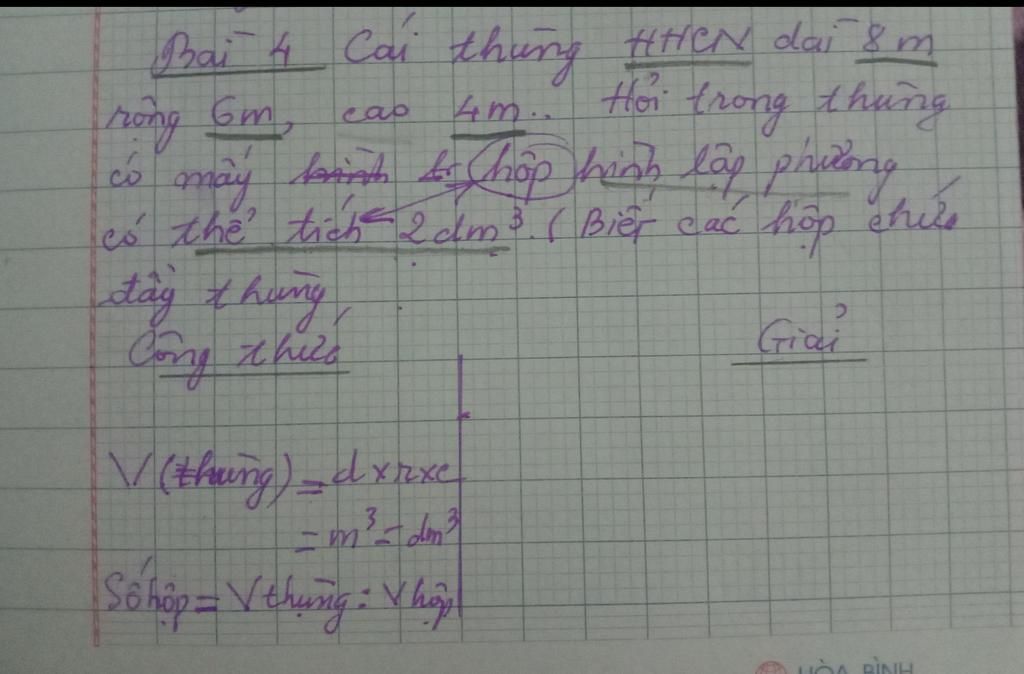 Bài 4 Cái thùng HHCN dài 8m
rộng 6m, cao 4m.. Hỏi trong thùng
có mấy hình hộp hình lập phương
có thể tích 2dm³. (Biết các hộp chứa
đầy thùng
Công thức
Giải
V(thùng) = d x r x c
= m³ = dm³
Số hộp = V thùng : V hộp
HÒA BÌNH